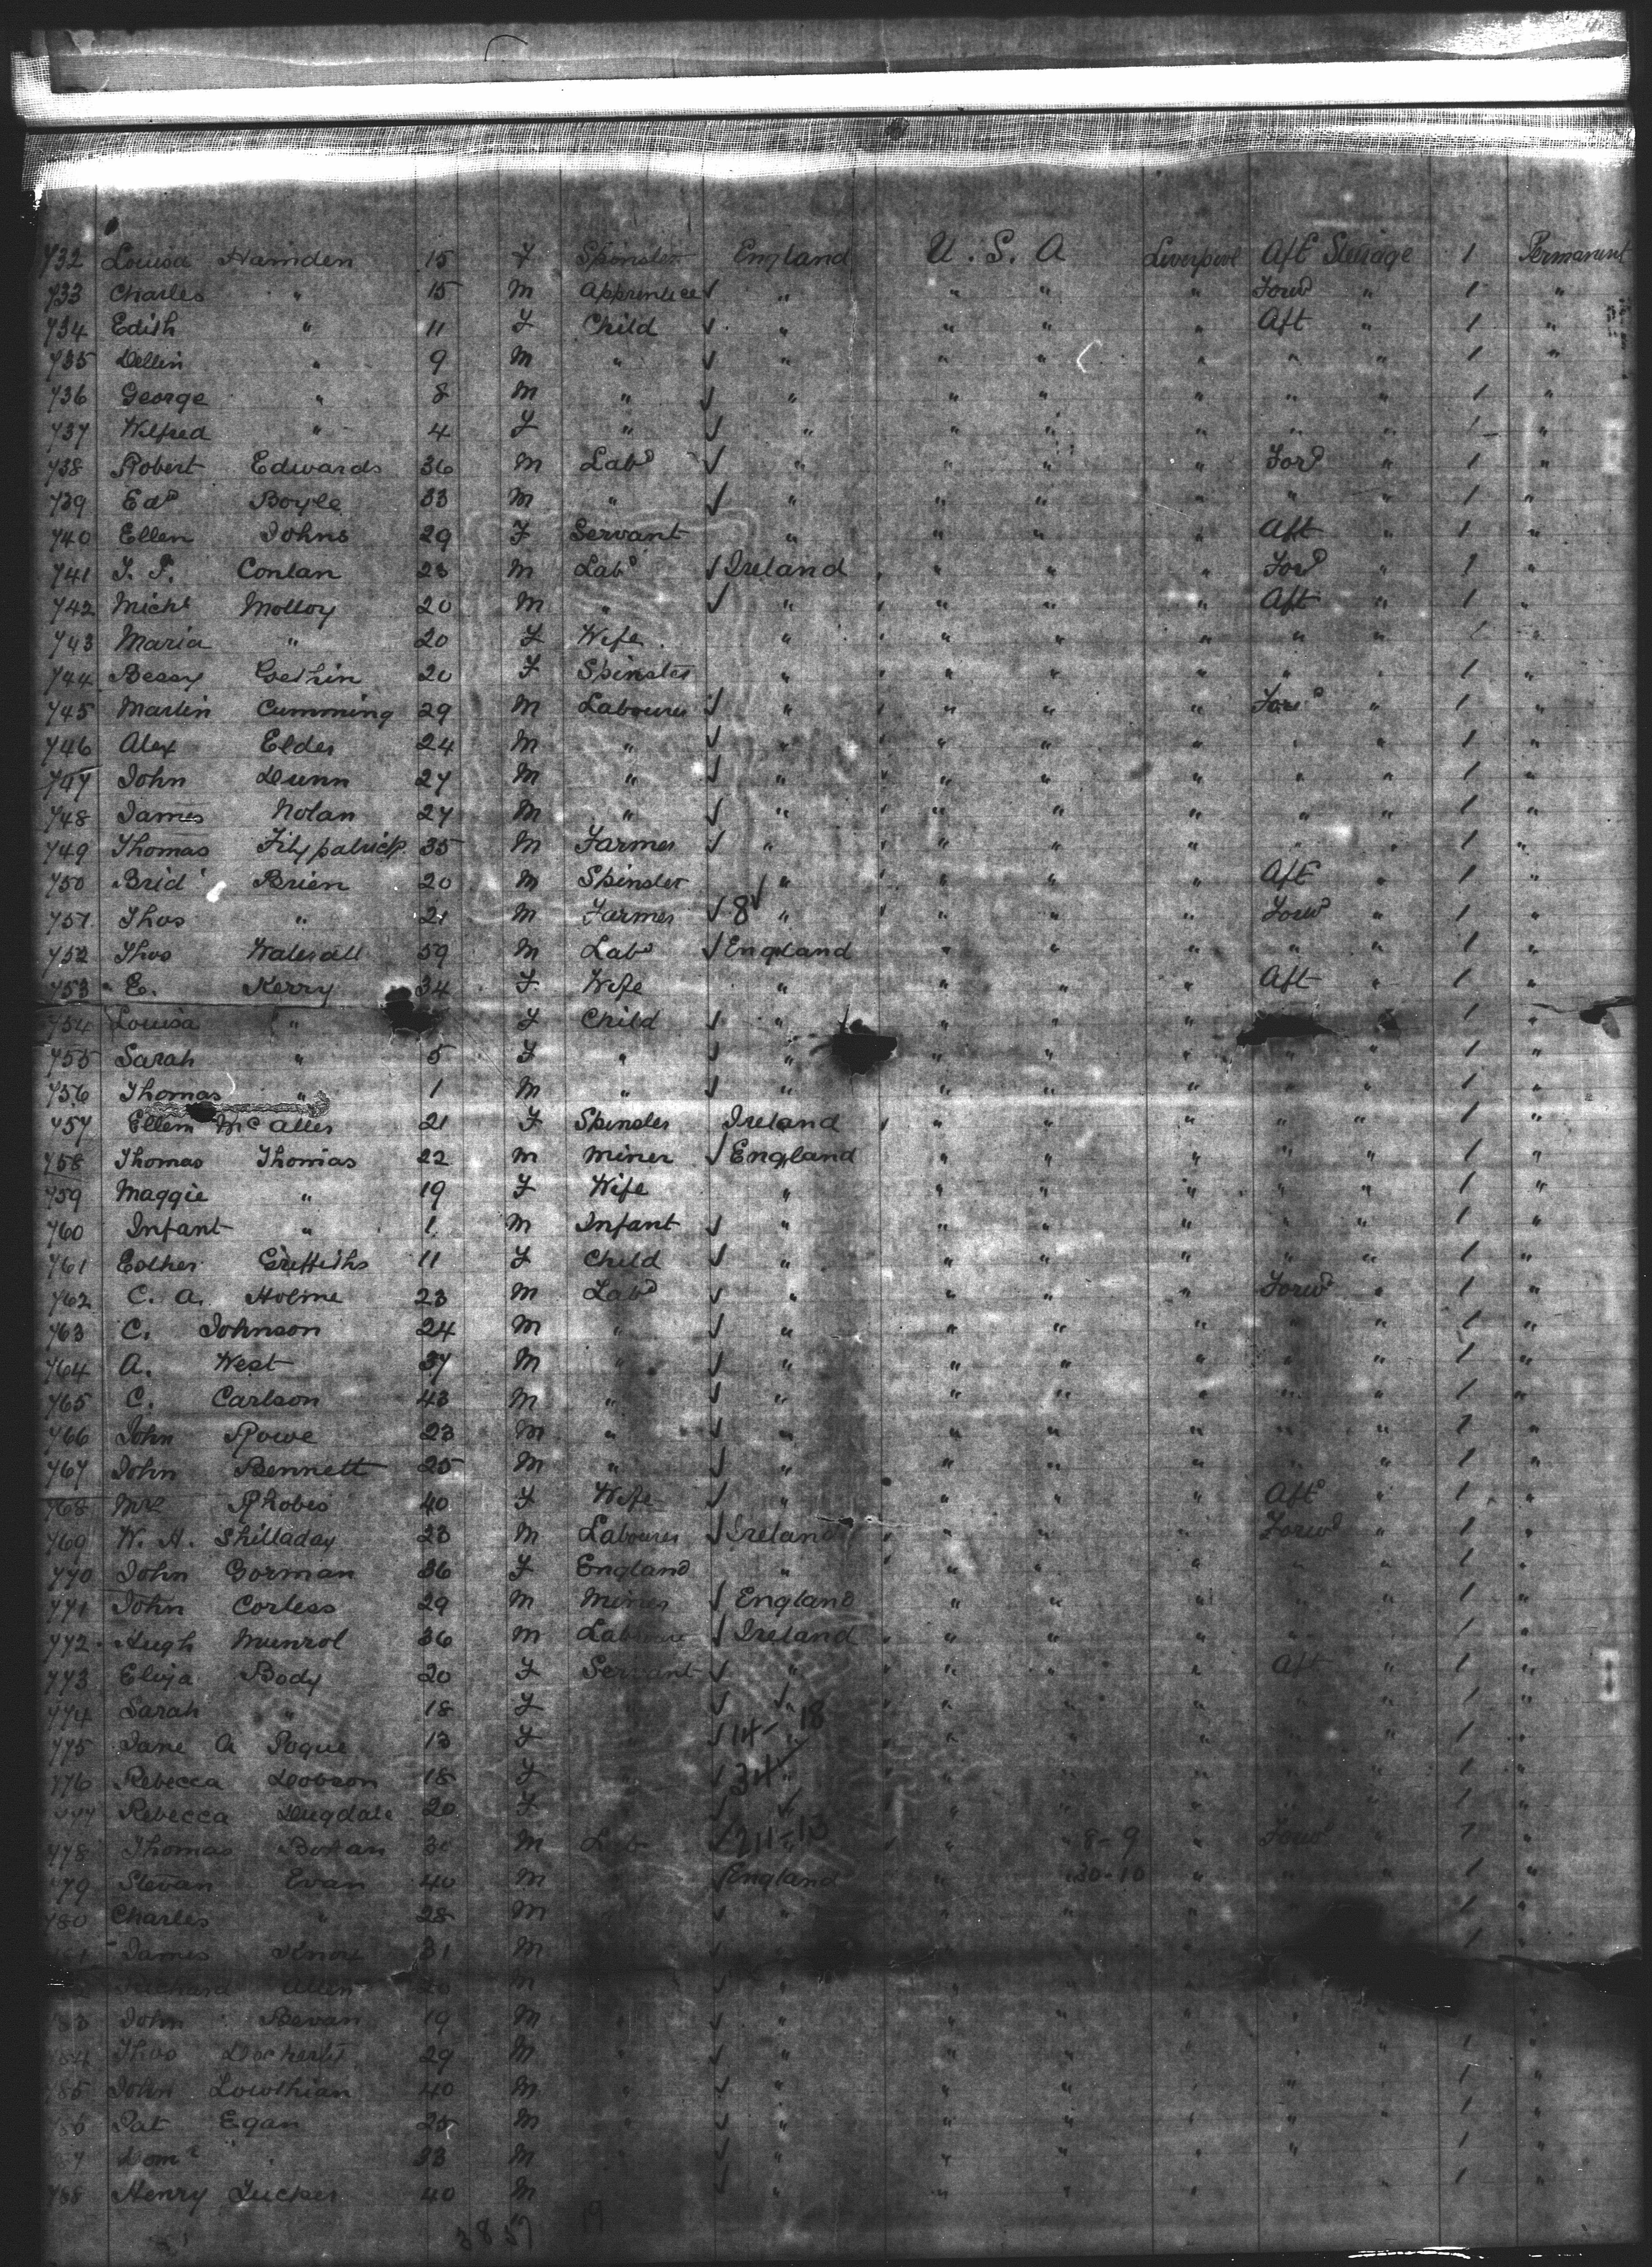 732 Louisa Hamden 15 F Spinster England U. S. A Liverpool Aft Steerage 1 Permanent
733 Charles " 15 M Apprentice " " " " Forwd " 1 "
734 Edith " 11 F Child " " " " Aft " 1 "
735 " 9 M " " " " " " " 1 "
736 George " 8 M " " " " " " " 1 "
737 Wilfred " 4 F " " " " " " " 1 "
738 Robert Edwards 36 M Labr " " " " Forwd " 1 "
739 Edd Boyle 33 M " " " " " " " 1 "
740 Ellen Johns 29 F Servant " " " " Aft " 1 "
741 Conlan 23 M Labr Ireland " " " Forwd " 1 "
742 Michl Molloy 20 M " " " " " Aft " 1 "
743 Maria " 20 F Wife " " " " " " 1 "
744 Bessy Gethin 20 F Spinster " " " " " " 1 "
745 Martin Cumming 29 M Labourer " " " " Forwd " 1 "
746 Alex Elder 24 M " " " " " " " 1 "
747 John Dunn 27 M " " " " " " " 1 "
748 James Nolan 27 M " " " " " " " 1 "
749 Thomas Fitzpatrick 35 M Farmer " " " " " " 1 "
750 Brid Brien 20 M Spinster " " " " Aft " 1 "
751 Thos " 21 M Farmer 8 " " " " Forwd " 1 "
752 Thos 59 M Labr England " " " " " 1 "
753 E. Kerry 34 F Wife " " " " Aft " 1 "
754 Louisa " F Child " " " " " 1 "
755 Sarah " 5 F " " " " " " " 1 "
756 Thomas " 1 M " " " " " " " 1 "
757 Ellen McAtter 21 F Spinster Ireland " " " " " 1 "
758 Thomas Thomas 22 M Miner England " " " " " 1 "
759 Maggie " 19 F Wife " " " " " " 1 "
760 Infant " 1 M Infant " " " " " " 1 "
761 Esther Griffiths 11 F Child " " " " " " 1 "
762 C. A. Holme 23 M Labr " " " " Forwd " 1 "
763 C. Johnson 24 M " " " " " " " 1 "
764 A. West 37 M " " " " " " " 1 "
765 C. Carlson 43 M " " " " " " " 1 "
766 John Rowe 23 M " " " " " " " 1 "
767 John Bennett 25 M " " " " " " " 1 "
768 Mrs 40 F Wife " " " " Aft " 1 "
769 W. H. Shilladay 23 M Labourer Ireland " " " Forwd " 1 "
770 John Gorman 36 F England " " " " " " 1 "
771 John Corless 29 M Miner England " " " " " 1 "
772 Hugh Munrol 36 M Labourer Ireland " " " " " 1 "
773 Eliza Body 20 F Servant " " " " Aft " 1 "
774 Sarah " 18 F " " " " " " 1 "
775 Jane A Pogue 13 F 14-18 " " " " " 1 "
776 Rebecca Dobson 18 F 34 " " " " " 1 "
777 Rebecca Dugdale 20 F " " " " " " 1 "
778 Thomas 30 M Lab " " 8-9 " Forwd " 1 "
779 Stevan Evan 40 M England " 30-10 " " " 1 "
780 Charles " 28 M " " " " " " 1 "
James Knox 31 M " 1 "
Richard Allen 20 M "
John Bevan 19 M " " " "
Thos Docherty 29 M " " " " 1 "
John Lowthian 40 M " " " " " 1 "
Pat Egan 25 M " " " " " 1 "
33 M " " " " " 1 "
788 Henry Tucker 40 M " " " 1 "